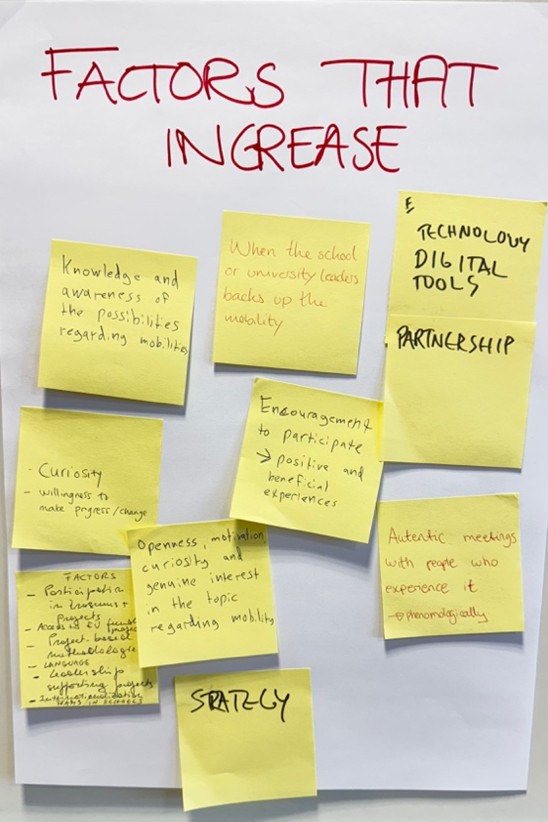 FACTORS THAT
INCREASE
Knowledge and
awareness of
the possibilities
regarding mobilities
When the school
or university leaders
backs up the
mobility
E
TECHNOLOGY
DIGITAL
TOOLS
PARTNERSHIP
Encouragement
to participate
→ positive and
beneficial
experiences
- Curiosity
- willingness to
make progress/change
Openness, motivation
curiosity and
genuine interest
in the topic
regarding mobility
Autentic meetings
with people who
experience it
phenomologically
FACTORS
- Participation
in Erasmus+
projects
- Access to EU funded
projects
- Project-based
methodologie
- LANGUAGE
- Leadership
supporting projects
- Internationalization
IN SCHOOLS
STRATEGY